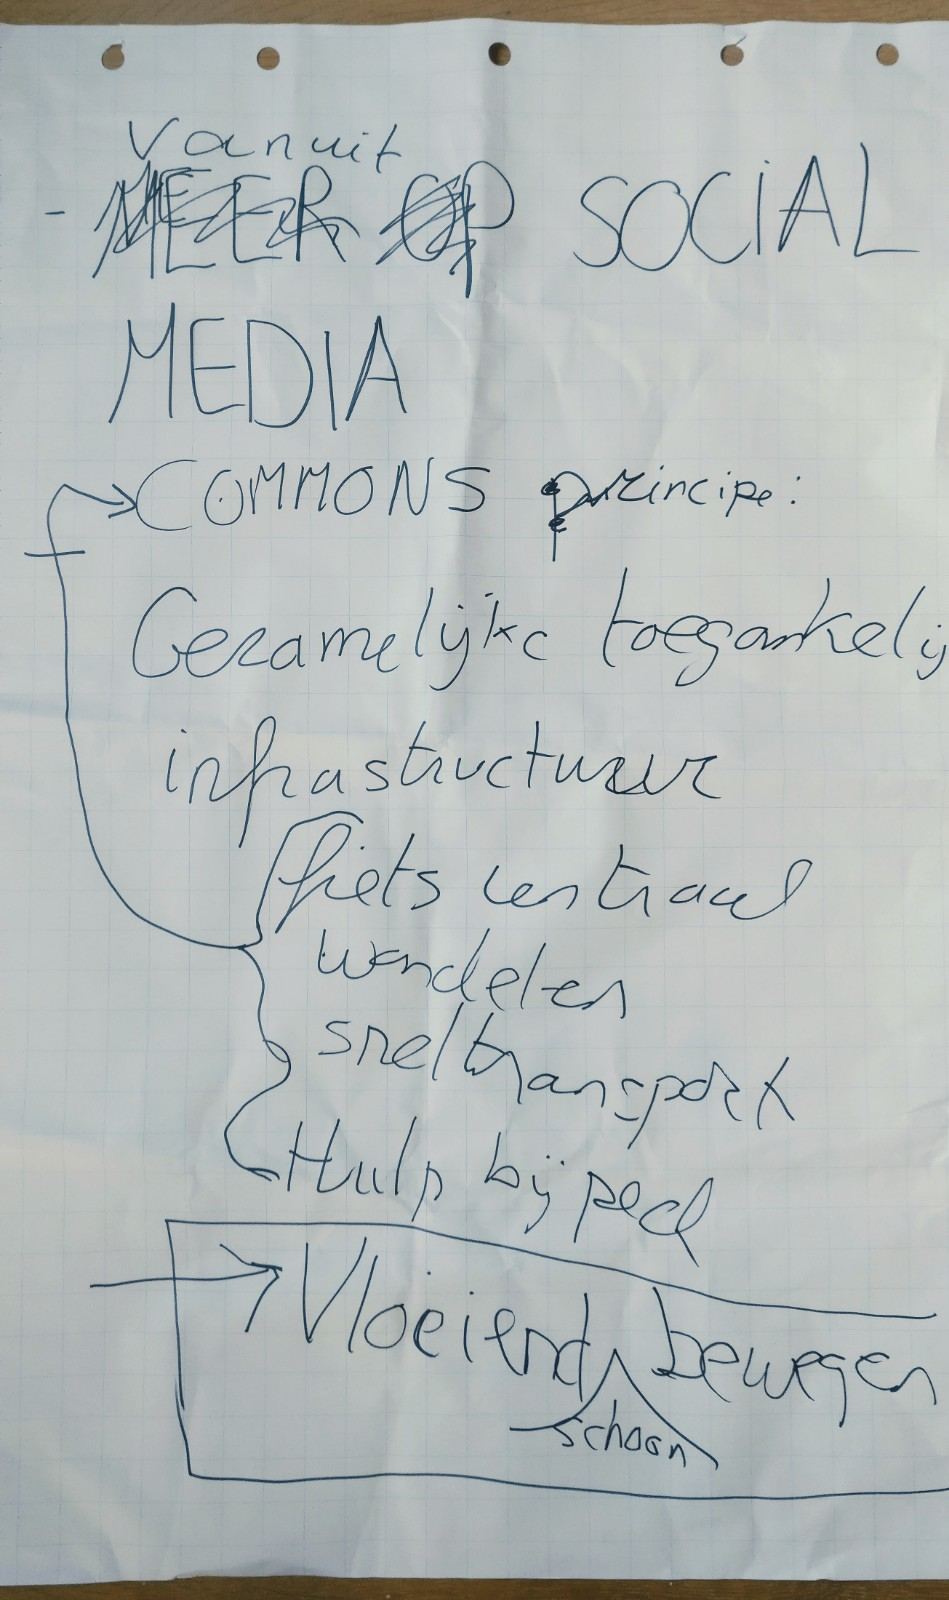 Vanuit
- MEER OP SOCIAL
MEDIA
COMMONS principe:
Gezamelijke toegankelij
infrastructuur
fiets centraal
wandelen
sneltransport
Hulp bij pech
Vloeiend bewegen
schoon